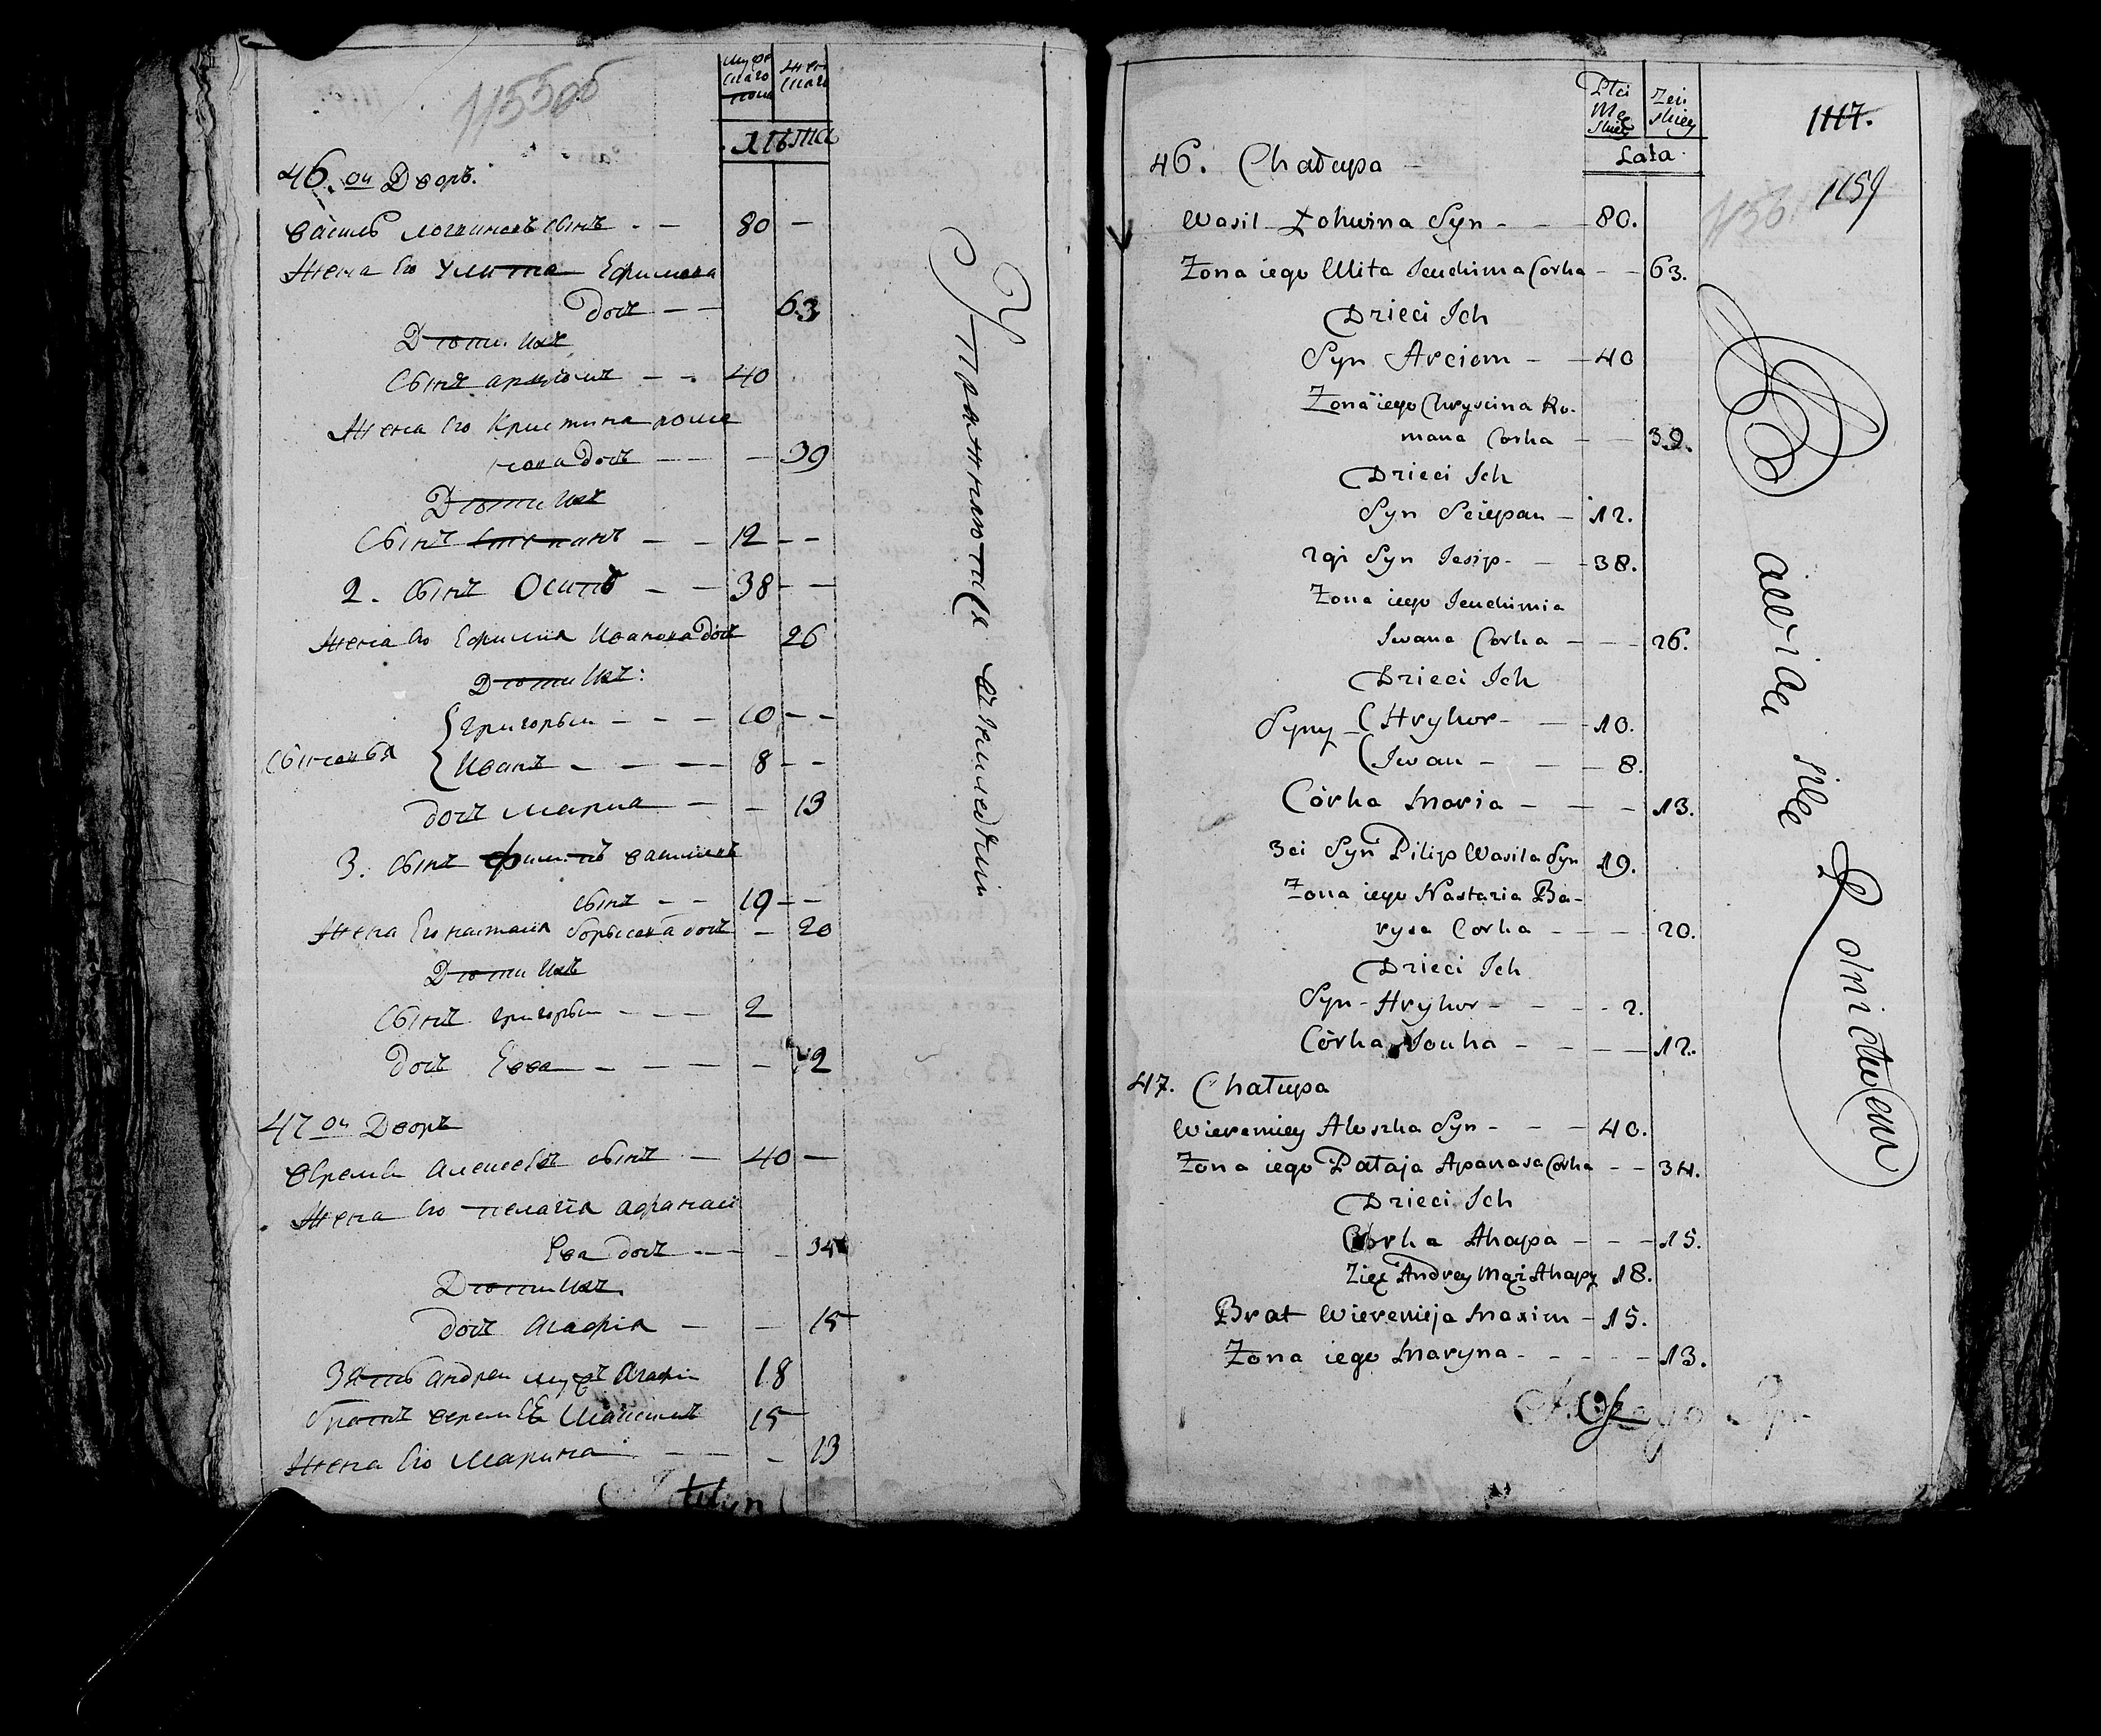 1155об
муже
скаго
пола
женскаго
лѣта
46.ой Дворъ.
василь логвиновъ сынъ - - 80 -
жена его Улита Ефимова
дочь - - 63
Дѣти ихъ
Сынъ артiомъ - - 40
Жена его Кристина рома
нова дочь - - - 39
Дѣти ихъ
Сынъ Степанъ - - 12 - -
2. Сынъ Осипъ - - 38 - -
жена его Ефимия Иванова дочь 26
Дѣти ихъ:
Сыновья { григорьи - - - 10 - -
{ Иванъ - - - - 8 - -
дочь мариа - - 13
3. сынъ филипъ васильевъ
сынъ - - 19 - -
жена его насталия борысова дочь - 20
Дѣти ихъ
Сынъ григорьи - - - 2
дочь Евва - - - - - 12
47ои Дворъ
Еремѣи алексеевъ сынъ - 40 -
Жена его пелагiя афанаси
Ева дочь - - - 34
Дѣти ихъ
дочь Агафiя - - 15
Зять андреи мужъ Агафiи 18
братъ веремѣя Максимъ 15
Жена его Марина - - - 13
Упражняются въ земледелии
Płci
Męskiey
Zeńskiey
Lata
1117.
1159
1156
46. Chałupa -
Wasil Łohwina Syn - - - 80.
Zona iego Ulita Jeuchima Corka - - 63.
Dzieci Ich
Syn Arciom - - 40
Zona iego Chryscina Ro-
mana Corka - - 39.
Dzieci Ich
Syn Sciepan - 12.
2gi Syn Jesip - - 38.
Zona iego Jeuchimia
Iwana Corka - - - 26.
Dzieci Ich
Syny ( Hryhor - - - 10.
( Iwan - - - 8.
Córka Maria - - - 13.
3ci Syn Pilip Wasila Syn 19.
Zona iego Nastazia Ba-
rysa Corka - - - 20.
Dzieci Ich
Syn - Hryhor - - - - 2.
Córka Jouha - - - - 12.
47. Chałupa
Wieremiey Aloszka Syn - - - 40.
Zona iego Pałaja Apanasa Corka - - 34.
Dzieci Ich
Corka Ahapa - - - 15.
Zięć Andrey Mąż Ahapy 18.
Brat Wieremieja Maxim - 15.
Zona iego Maryna - - - - - 13.
Bawią się Rolnictwem